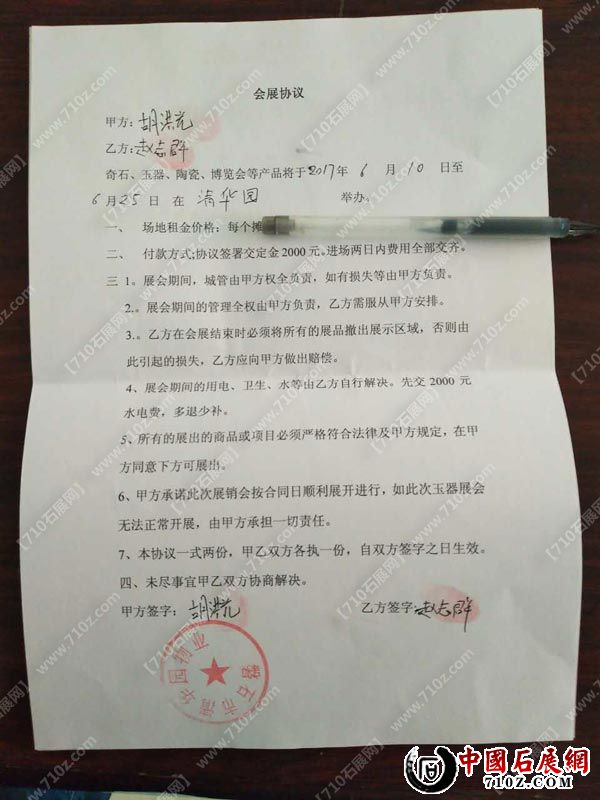 会展协议
甲方:
乙方:赵志群
奇石、玉器、陶瓷、博览会等产品将于2017年 6 月 10 日至
6 月25 日 在 清华园 举办。
一、 场地租金价格:每个摊
二、 付款方式;协议签署交定金 2000 元。进场两日内费用全部交齐。
三 1。展会期间,城管由甲方权全负责,如有损失等由甲方负责。
2.。展会期间的管理全权由甲方负责,乙方需服从甲方安排。
3.。乙方在会展结束时必须将所有的展品撤出展示区域,否则由
此引起的损失,乙方应向甲方做出赔偿。
4、展会期间的用电、卫生、水等由乙方自行解决。先交 2000 元
水电费,多退少补。
5、所有的展出的商品或项目必须严格符合法律及甲方规定,在甲
方同意下方可展出。
6、甲方承诺此次展销会按合同日顺利展开进行,如此次玉器展会
无法正常开展,由甲方承担一切责任。
7、本协议一式两份,甲乙双方各执一份,自双方签字之日生效。
四、未尽事宜甲乙双方协商解决。
甲方签字: 乙方签字:赵志群
磐石市清华园物业
中國石展網
710Z.COM
【710石展网】
www.710z.com